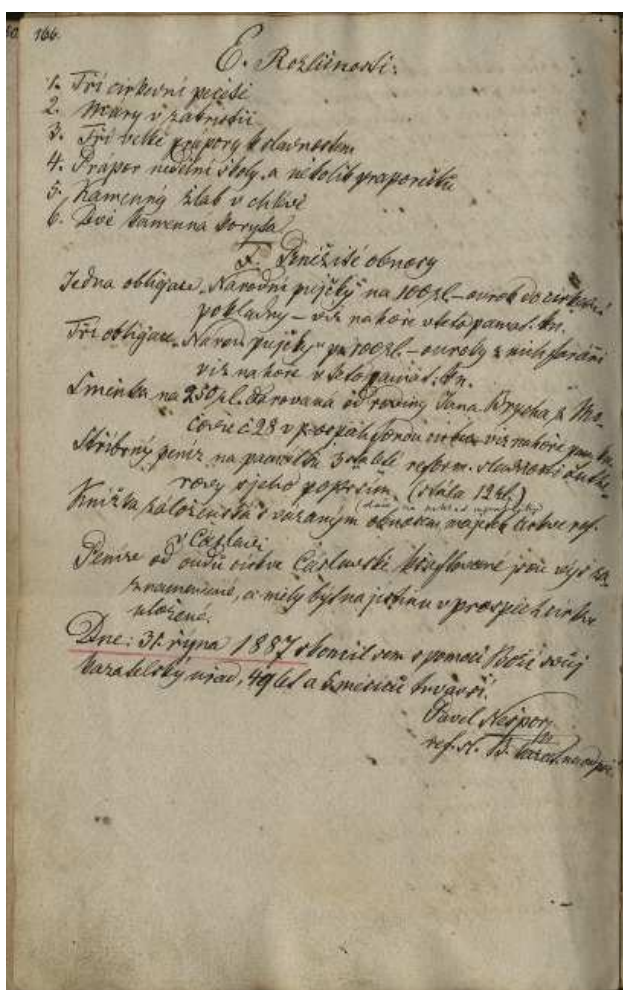 166.
E. Rozličnosti:
1. Tří církevní pečeti
2. Máry v zákristii
3. Tří velké prápory k slavnostem
4. Prápor nedělní školy, a několik praporečků
5. Kamenný žlab v chlívě
6. Dvě kamenna koryta
F. Peněžité obnosy
Jedna obligace „Národní pujčky" na 100 zl. – ourok do církevní
pokladny – viz nahoře v této pamět. kn.
Tří obligace „Národ. pujčky" po 100 zl. – ouroky z nich faráři
viz nahoře v této pamět. kn.
Směnka na 250 zl. darovana od rodiny Jana z Mo-
čovic č 28 v prospěch fondu viz nahoře pam. kn.
Stříbrný peníz na památku 3 stoleté reform. Luthe-
rovy s jeho poprsím. (stála 12 zl.)
Knížka záloženská s vázaným obnosem majetek církve ref.
v Čáslavi
Peníze od oudů církve Čáslavské jsou výš za-
znamenané, a měly být na jistinu v prospěch církve
uložené.
Dne: 31. října 1887 skončil sem s pomocí Boží svůj
kazatelský úřad, 49 let a 5 měsíců trvavší.
Pavel Nešpor,
ref. sl. B.